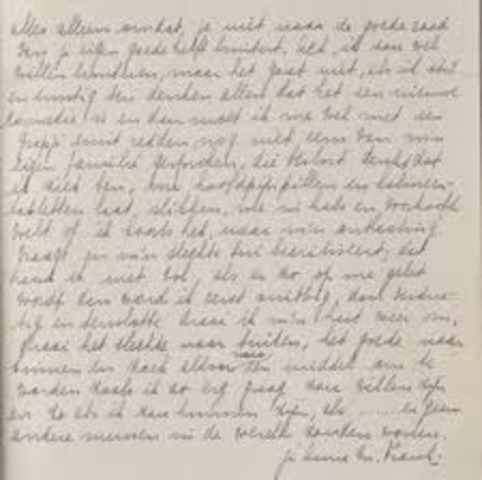 alles alleen omdat, je niet naar de goede raad
van je eigen goede helft luistert. Och, ik zou wel
willen luisteren, maar het gaat niet, als ik stil
en ernstig ben denken allen dat het een nieuwe
comedie is en dan moet ik me wel met een
grapje eruit redden, nog niet eens van m'n
eigen familie gesproken, die vast denkt dat
ik ziek ben, me hoofdpijnpillen en kalmeer-
tabletten laat slikken, me in hals en voorhoofd
voelt of ik koorts heb, naar m'n ontlasting
vraagt en m'n slechte bui becritiseert, dat
houd ik niet vol, als er zo op me gelet
wordt dan word ik eerst snibbig, dan verdrie-
tig en tenslotte draai ik m'n hart weer om,
draai het slechte naar buiten, het goede naar
binnen en zoek aldoor naar een middel om te
worden zoals ik zo erg graag zou willen zijn
en zo als ik zou kunnen zijn, als ..... er geen
andere mensen in de wereld zouden wonen.
je Anne M. Frank.